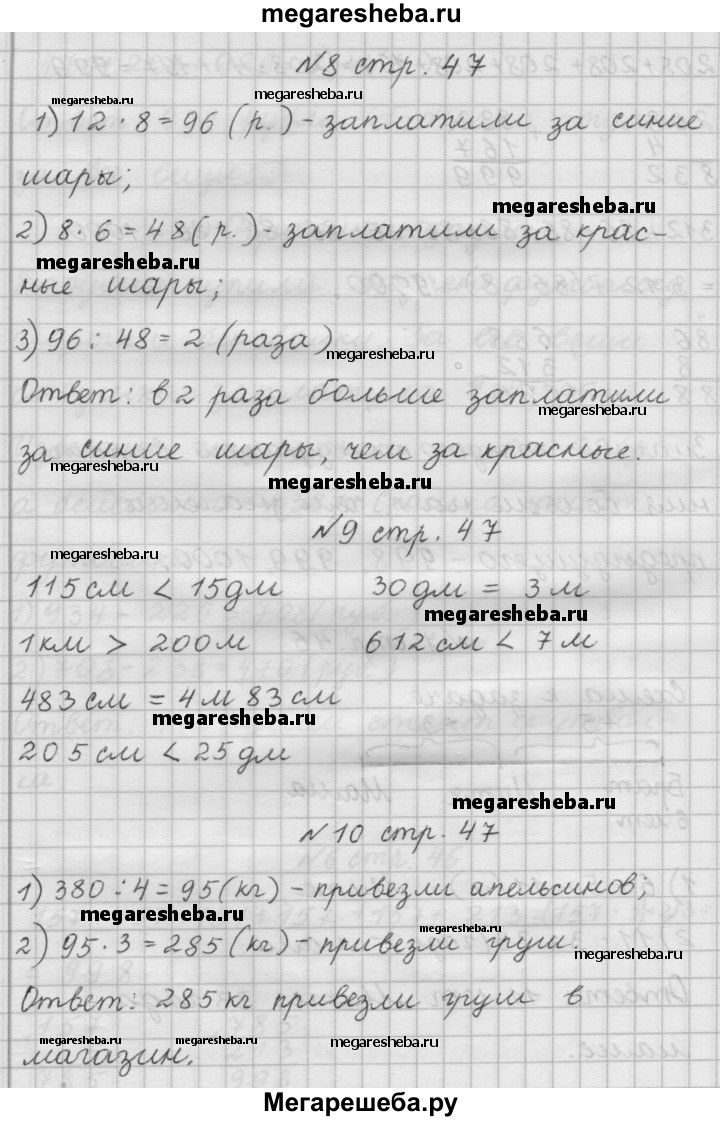 megaresheba.ru
N8 стр. 47
megaresheba.ru megaresheba.ru
1) 12 · 8 = 96 (р.) - заплатили за синие
шары;
megaresheba.ru
2) 8 · 6 = 48 (р.) - заплатили за крас-
megaresheba.ru
ные шары;
3) 96 : 48 = 2 (раза)
megaresheba.ru
Ответ: в 2 раза больше заплатили
megaresheba.ru
за синие шары, чем за красные.
megaresheba.ru
megaresheba.ru
N9 стр. 47
megaresheba.ru
115 см < 15 дм 30 дм = 3 м
megaresheba.ru
1 км > 200 м 612 см < 7 м
483 см = 4 м 83 см
megaresheba.ru
205 см < 25 дм
megaresheba.ru
N10 стр. 47
1) 380 : 4 = 95 (кг) - привезли апельсинов;
megaresheba.ru
2) 95 · 3 = 285 (кг) - привезли груш.
megaresheba.ru
megaresheba.ru
Ответ: 285 кг привезли груш в
megaresheba.ru megaresheba.ru megaresheba.ru
магазин.
Мегарешеба.ру